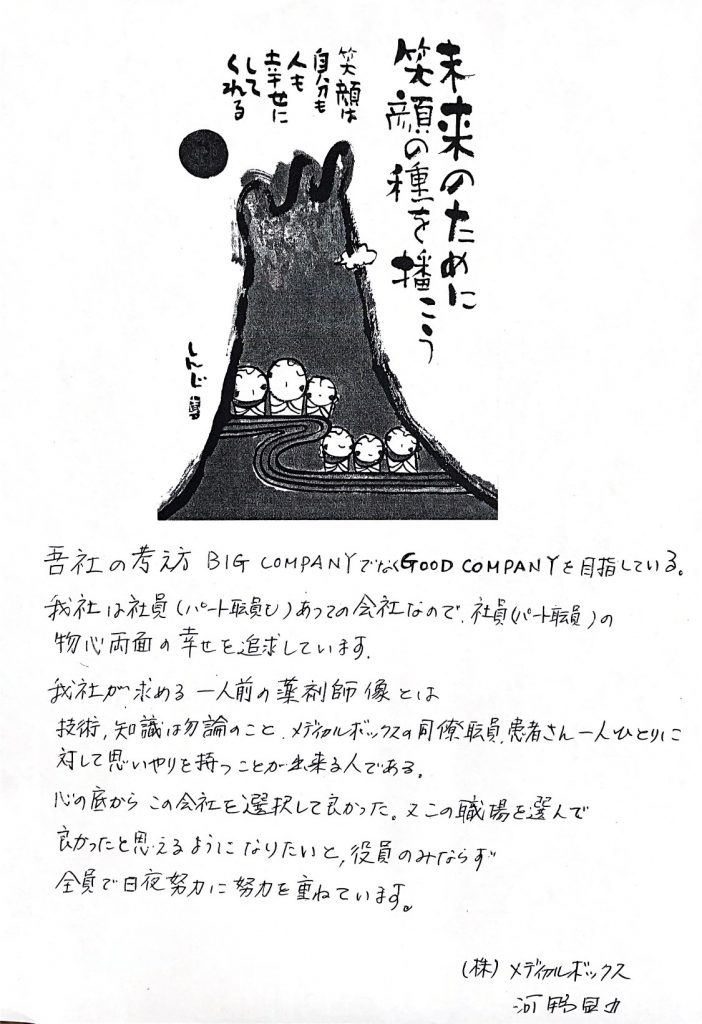 未来のために
笑顔の種を播こう
笑顔は
自分も
人も
幸せに
して
くれる
しんじ
吾社の考え方 BIG COMPANYでなくGOOD COMPANYを目指している。
我社は社員(パート職員も)あっての会社なので、社員(パート職員)の
物心両面の幸せを追求しています。
我社が求める一人前の薬剤師像とは
技術,知識は勿論のこと、メディカルボックスの同僚職員,患者さん一人ひとりに
対して思いやりを持つことが出来る人である。
心の底からこの会社を選択して良かった。又この職場を選んで
良かったと思えるようになりたいと,役員のみならず
全員で日夜努力に努力を重ねています。
(株)メディカルボックス
河野